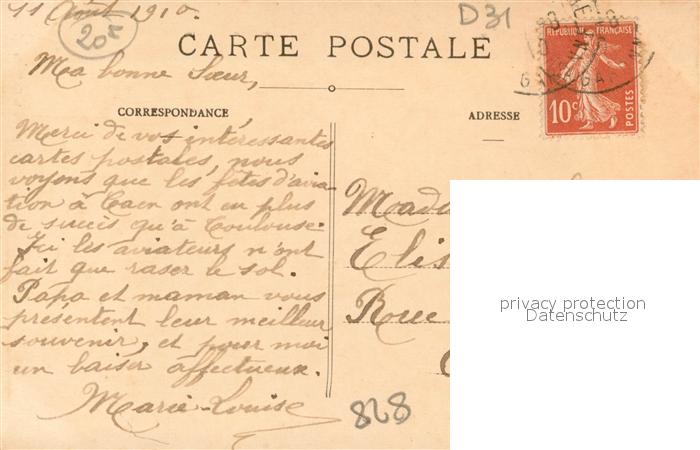 11 Août 1910.
20x
D31
CARTE POSTALE
Ma bonne Sœur,
CORRESPONDANCE
Merci de vos intéressantes
cartes postales, nous
voyons que les fêtes d'avia-
tion à Caen ont eu plus
de succès qu'à Toulouse.
Ici les aviateurs n'ont
fait que raser le sol.
Papa et maman vous
présentent leur meilleur
souvenir, et pour moi
un baiser affectueux.
Marie-Louise
828
ADRESSE
REPUBLIQUE FRANÇAISE
10c
POSTES
Mad
Elis
Rue
privacy protection
Datenschutz